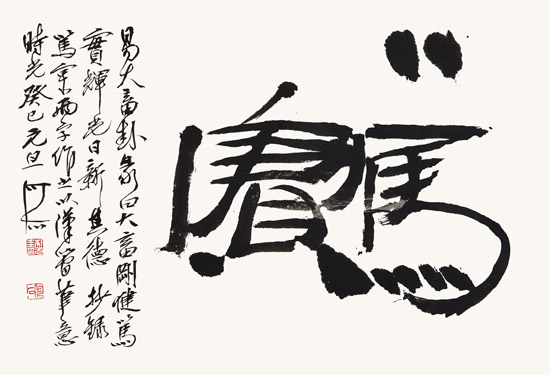 篤實
易大畜卦彖曰大畜剛健篤
實輝光日新其德 抄錄
篤實兩字作之以漢簡筆意
時在癸巳元旦